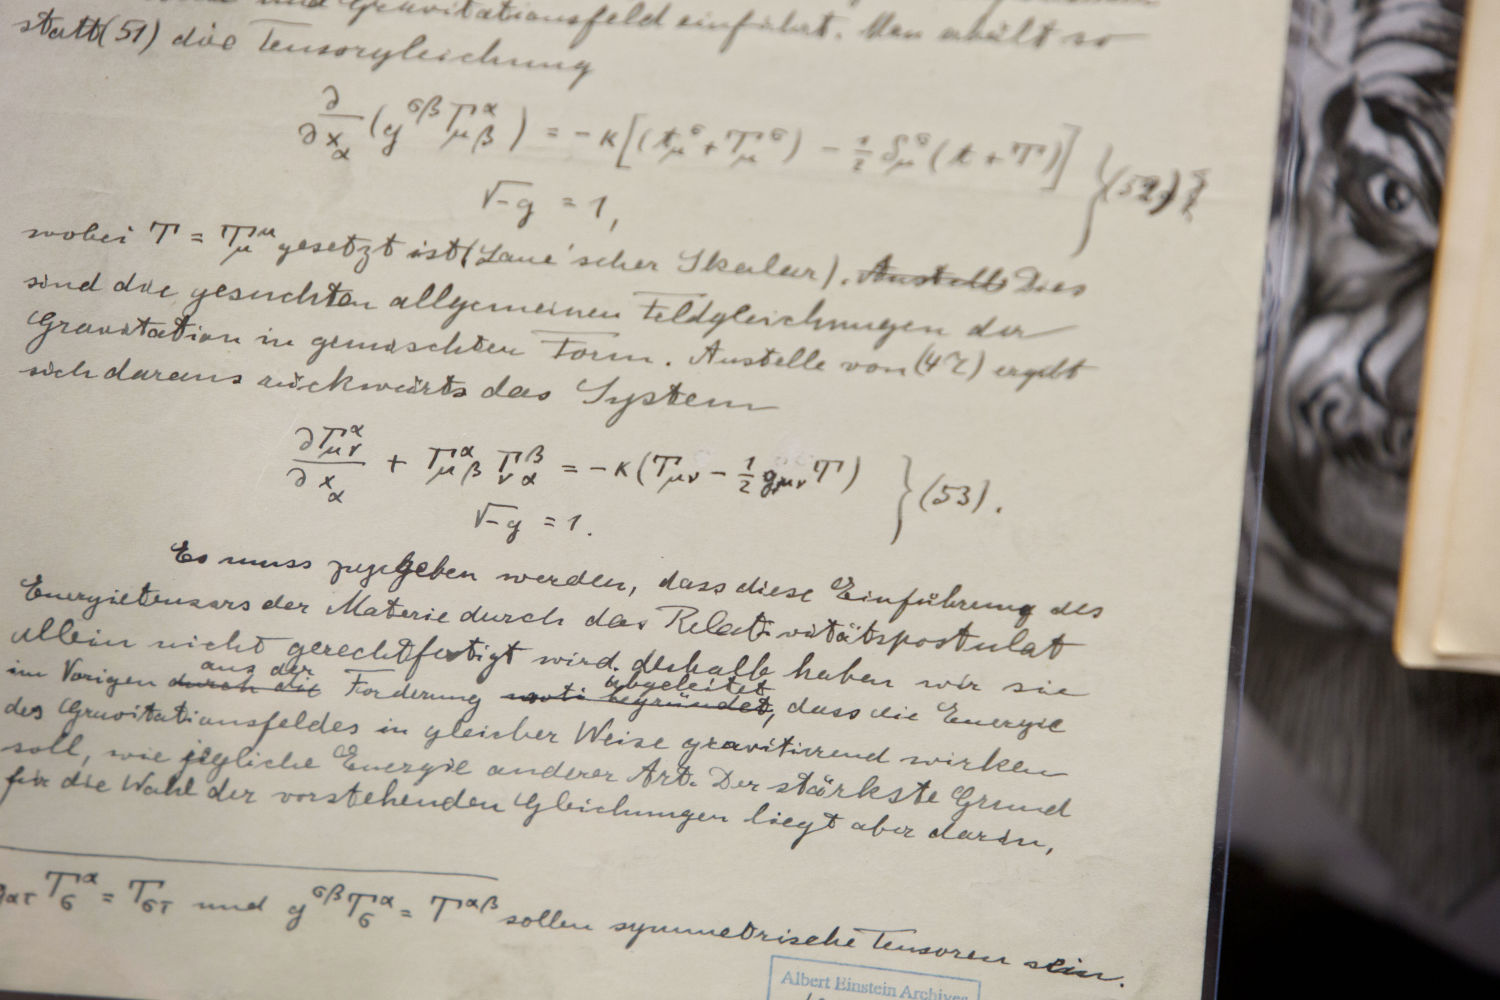 und Gravitationsfeld einführt. Man erhält so
statt (51) die Tensorgleichung
∂/∂x_α (g^{σβ} Γ^α_{μβ}) = -κ[(t_μ^σ + T_μ^σ) - 1/2 δ_μ^σ (t + T)] } (52)
√-g = 1,
wobei T = T_μ^μ gesetzt ist (Laue'scher Skalar). Anstelle Dies
sind die gesuchten allgemeinen Feldgleichungen der
Gravitation in gemischter Form. Anstelle von (47) ergibt
sich daraus rückwärts das System
∂Γ^α_{μν}/∂x_α + Γ^α_{μβ} Γ^β_{να} = -κ(T_{μν} - 1/2 g_{μν} T) } (53).
√-g = 1.
Es muss zugegeben werden, dass diese Einführung des
Energietensors der Materie durch das Relativitätspostulat
allein nicht gerechtfertigt wird. deshalb haben wir sie
im Vorigen durch die aus der Forderung begründet abgeleitet, dass die Energie
des Gravitationsfeldes in gleicher Weise gravitierend wirken
soll, wie jegliche Energie anderer Art. Der stärkste Grund
für die Wahl der vorstehenden Gleichungen liegt aber darin,
g_{ατ} T_σ^α = T_{στ} und g^{σβ} T_σ^α = T^{αβ} sollen symmetrische Tensoren sein.
Albert Einstein Archives